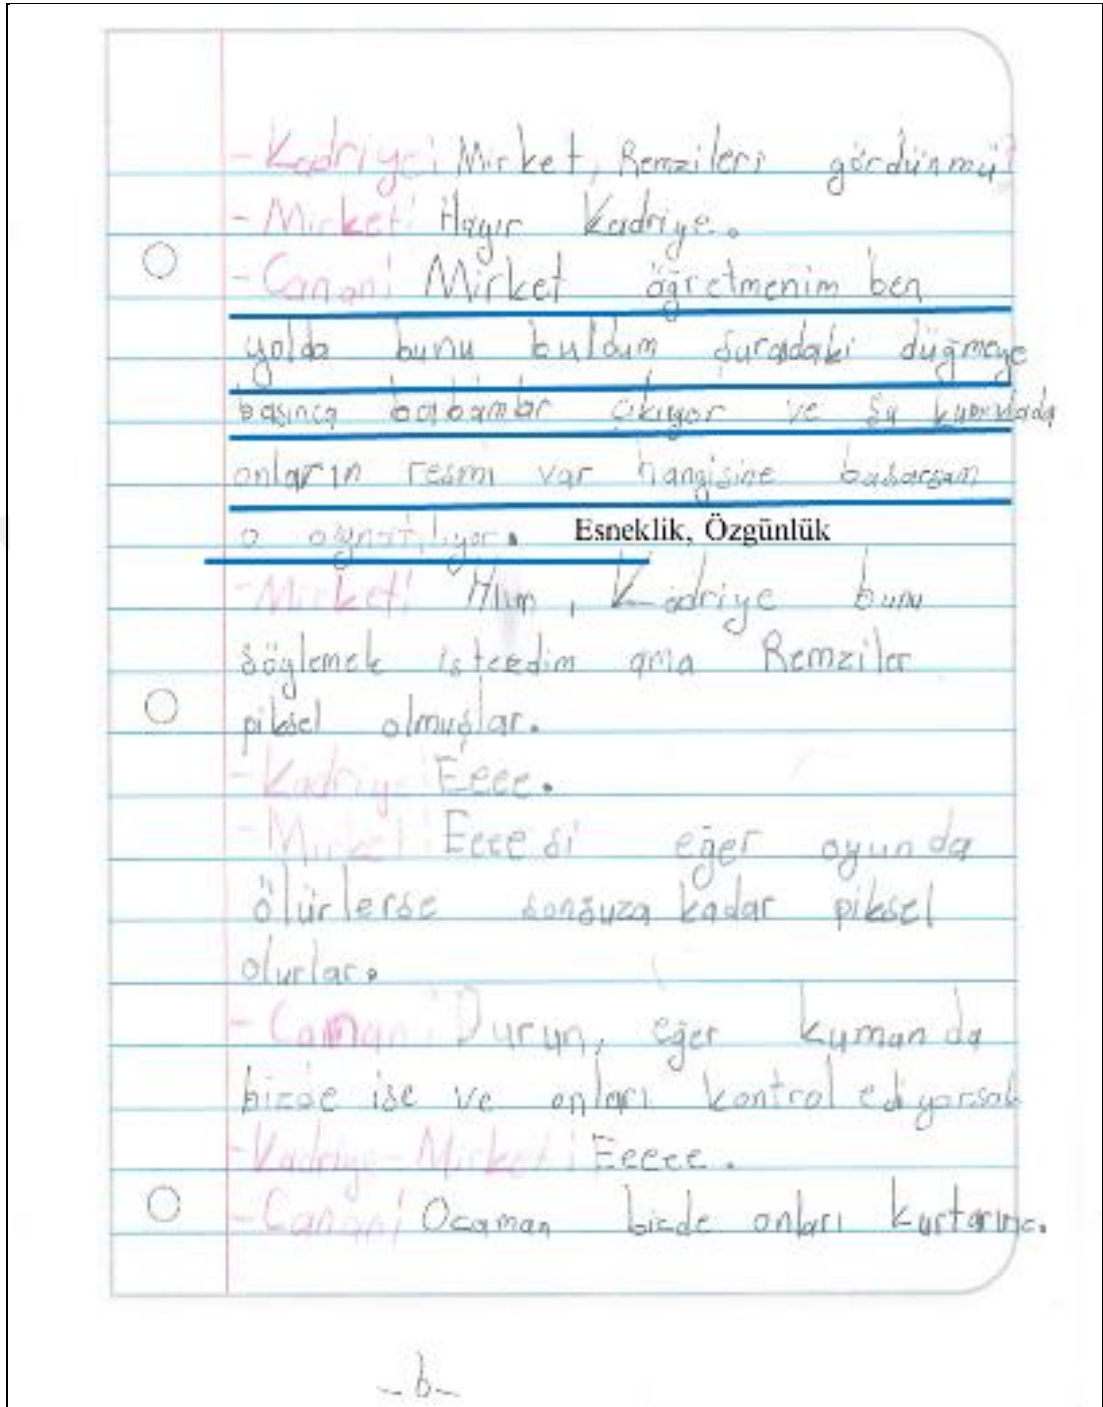 - Kadriye: Mirket, Remzileri gördünmü?
- Mirket: Hayır Kadriye.
- Canan: Mirket öğretmenim ben
yolda bunu buldum şuradaki düğmeye
basınca babamlar çıkıyor ve şu kumandada
onların resmi var hangisine basarsam
o oynatılıyor. Esneklik, Özgünlük
- Mirket: Hıım, Kadriye bunu
söylemek istemezdim ama Remziler
piksel olmuşlar.
- Kadriye: Eeee.
- Mirket: Eeee si eğer oyunda
ölürlerse sonsuza kadar piksel
olurlar.
- Canan: Durun, eğer kumanda
bizde ise ve onları kontrol ediyorsak
- Kadriye - Mirket: Eeeee.
- Canan: Ozaman bizde onları kurtarırız.
- 6 -